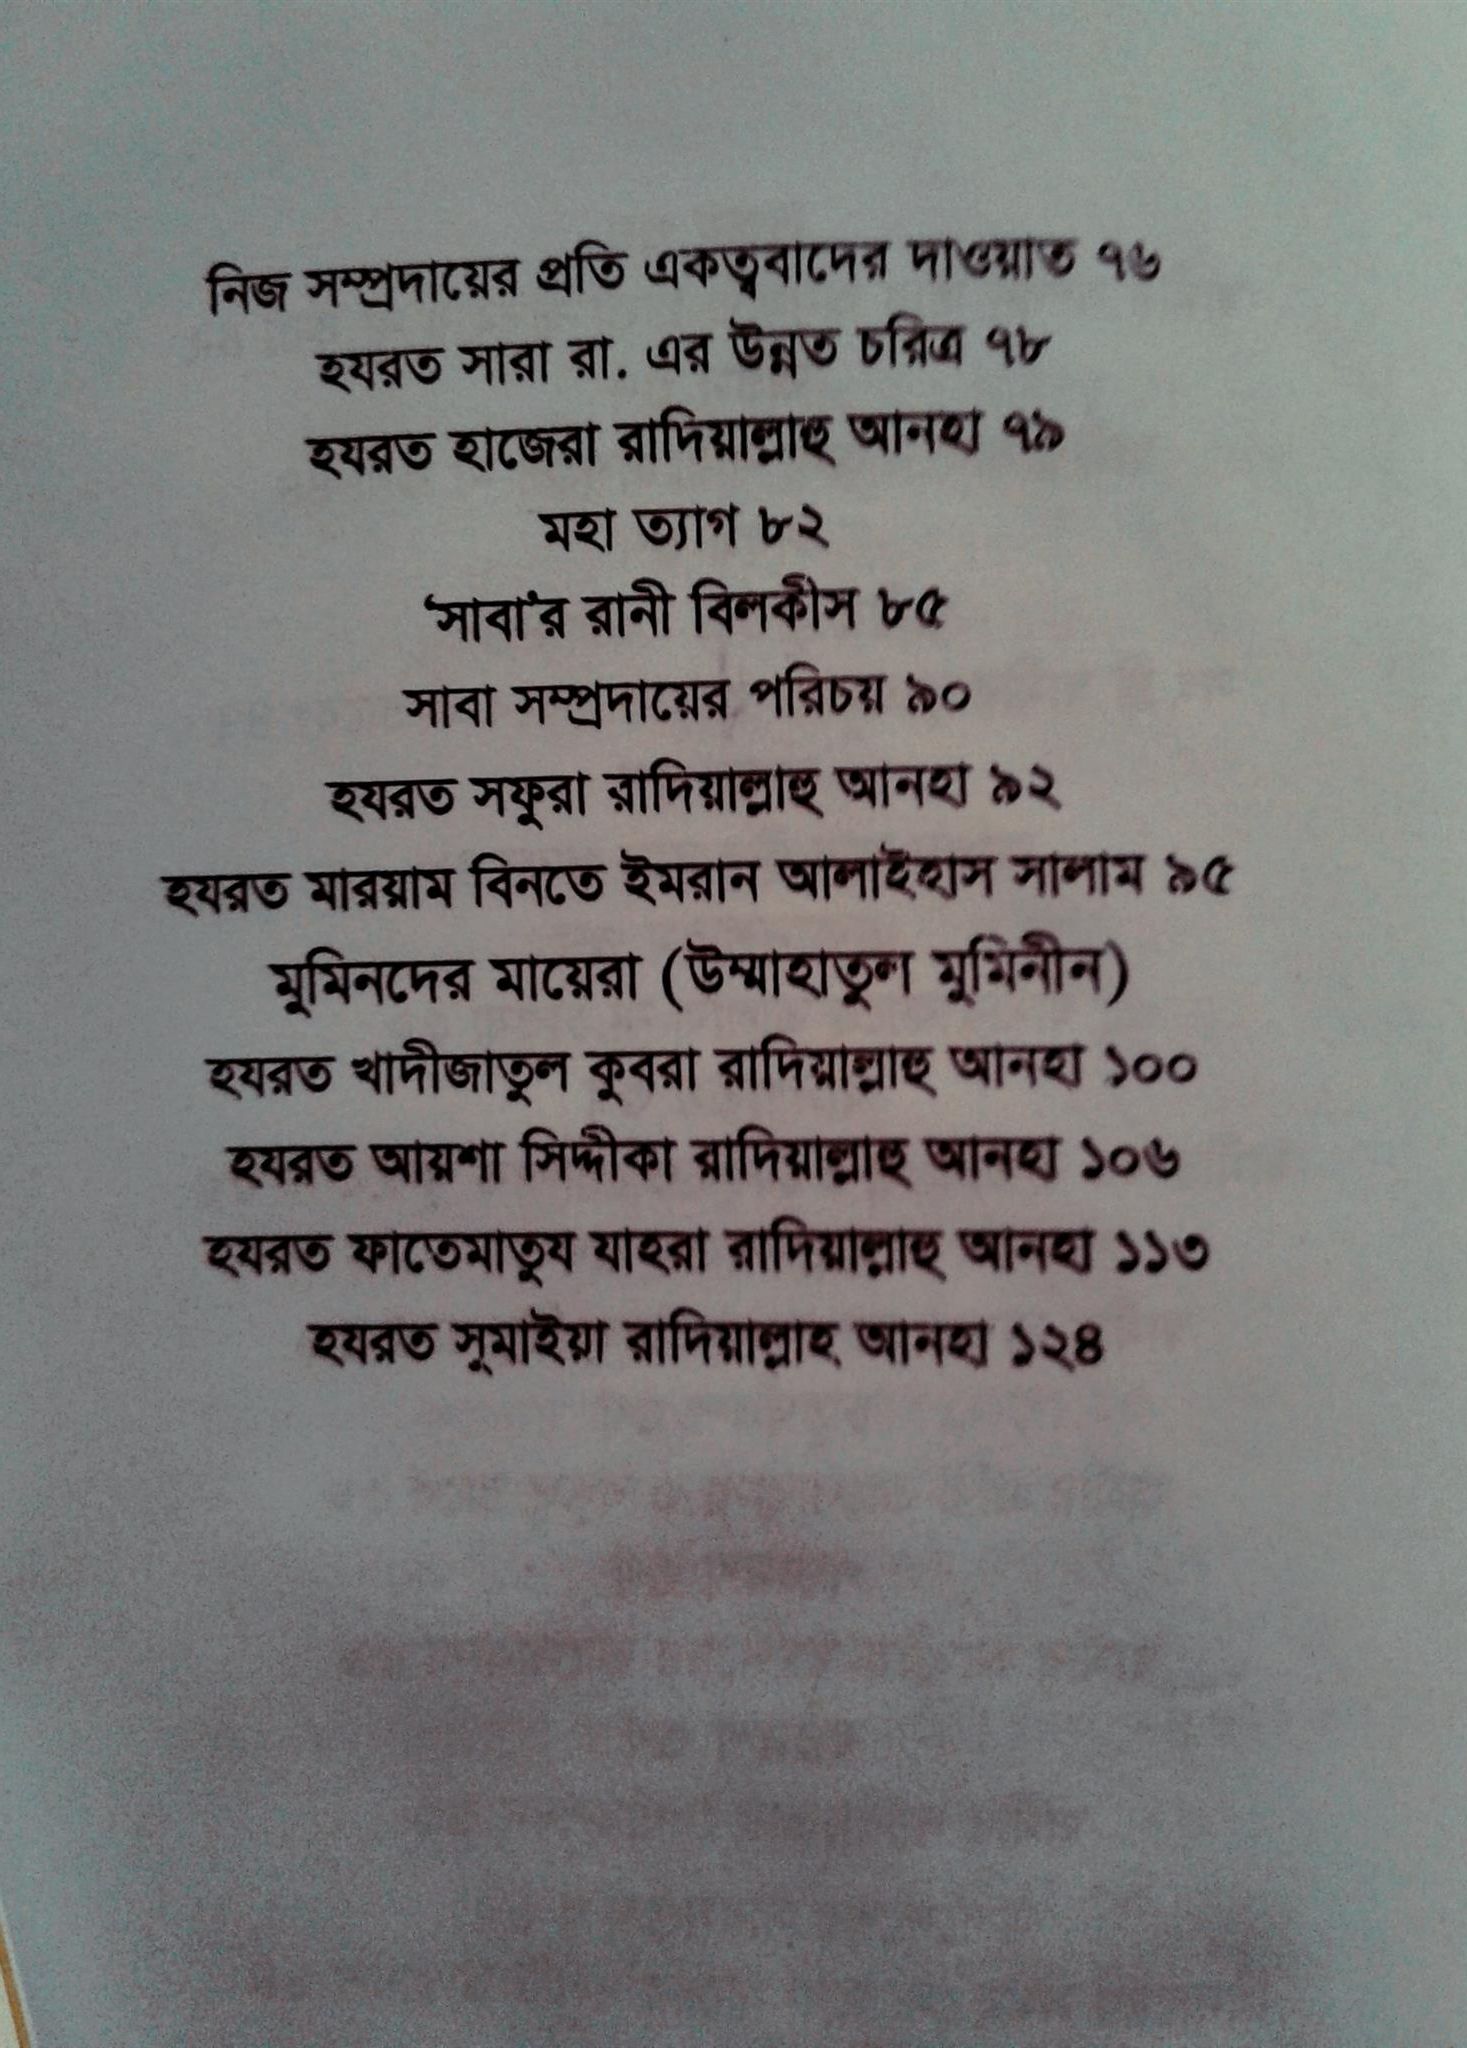 নিজ সম্প্রদায়ের প্রতি একত্ববাদের দাওয়াত ৭৬
হযরত সারা রা. এর উন্নত চরিত্র ৭৮
হযরত হাজেরা রাদিয়াল্লাহু আনহা ৭৯
মহা ত্যাগ ৮২
‘সাবা’র রানী বিলকীস ৮৫
সাবা সম্প্রদায়ের পরিচয় ৯০
হযরত সফুরা রাদিয়াল্লাহু আনহা ৯২
হযরত মারয়াম বিনতে ইমরান আলাইহাস সালাম ৯৫
মুমিনদের মায়েরা (উম্মাহাতুল মুমিনীন)
হযরত খাদীজাতুল কুবরা রাদিয়াল্লাহু আনহা ১০০
হযরত আয়শা সিদ্দীকা রাদিয়াল্লাহু আনহা ১০৬
হযরত ফাতেমাতুয যাহরা রাদিয়াল্লাহু আনহা ১১৩
হযরত সুমাইয়া রাদিয়াল্লাহ আনহা ১২৪